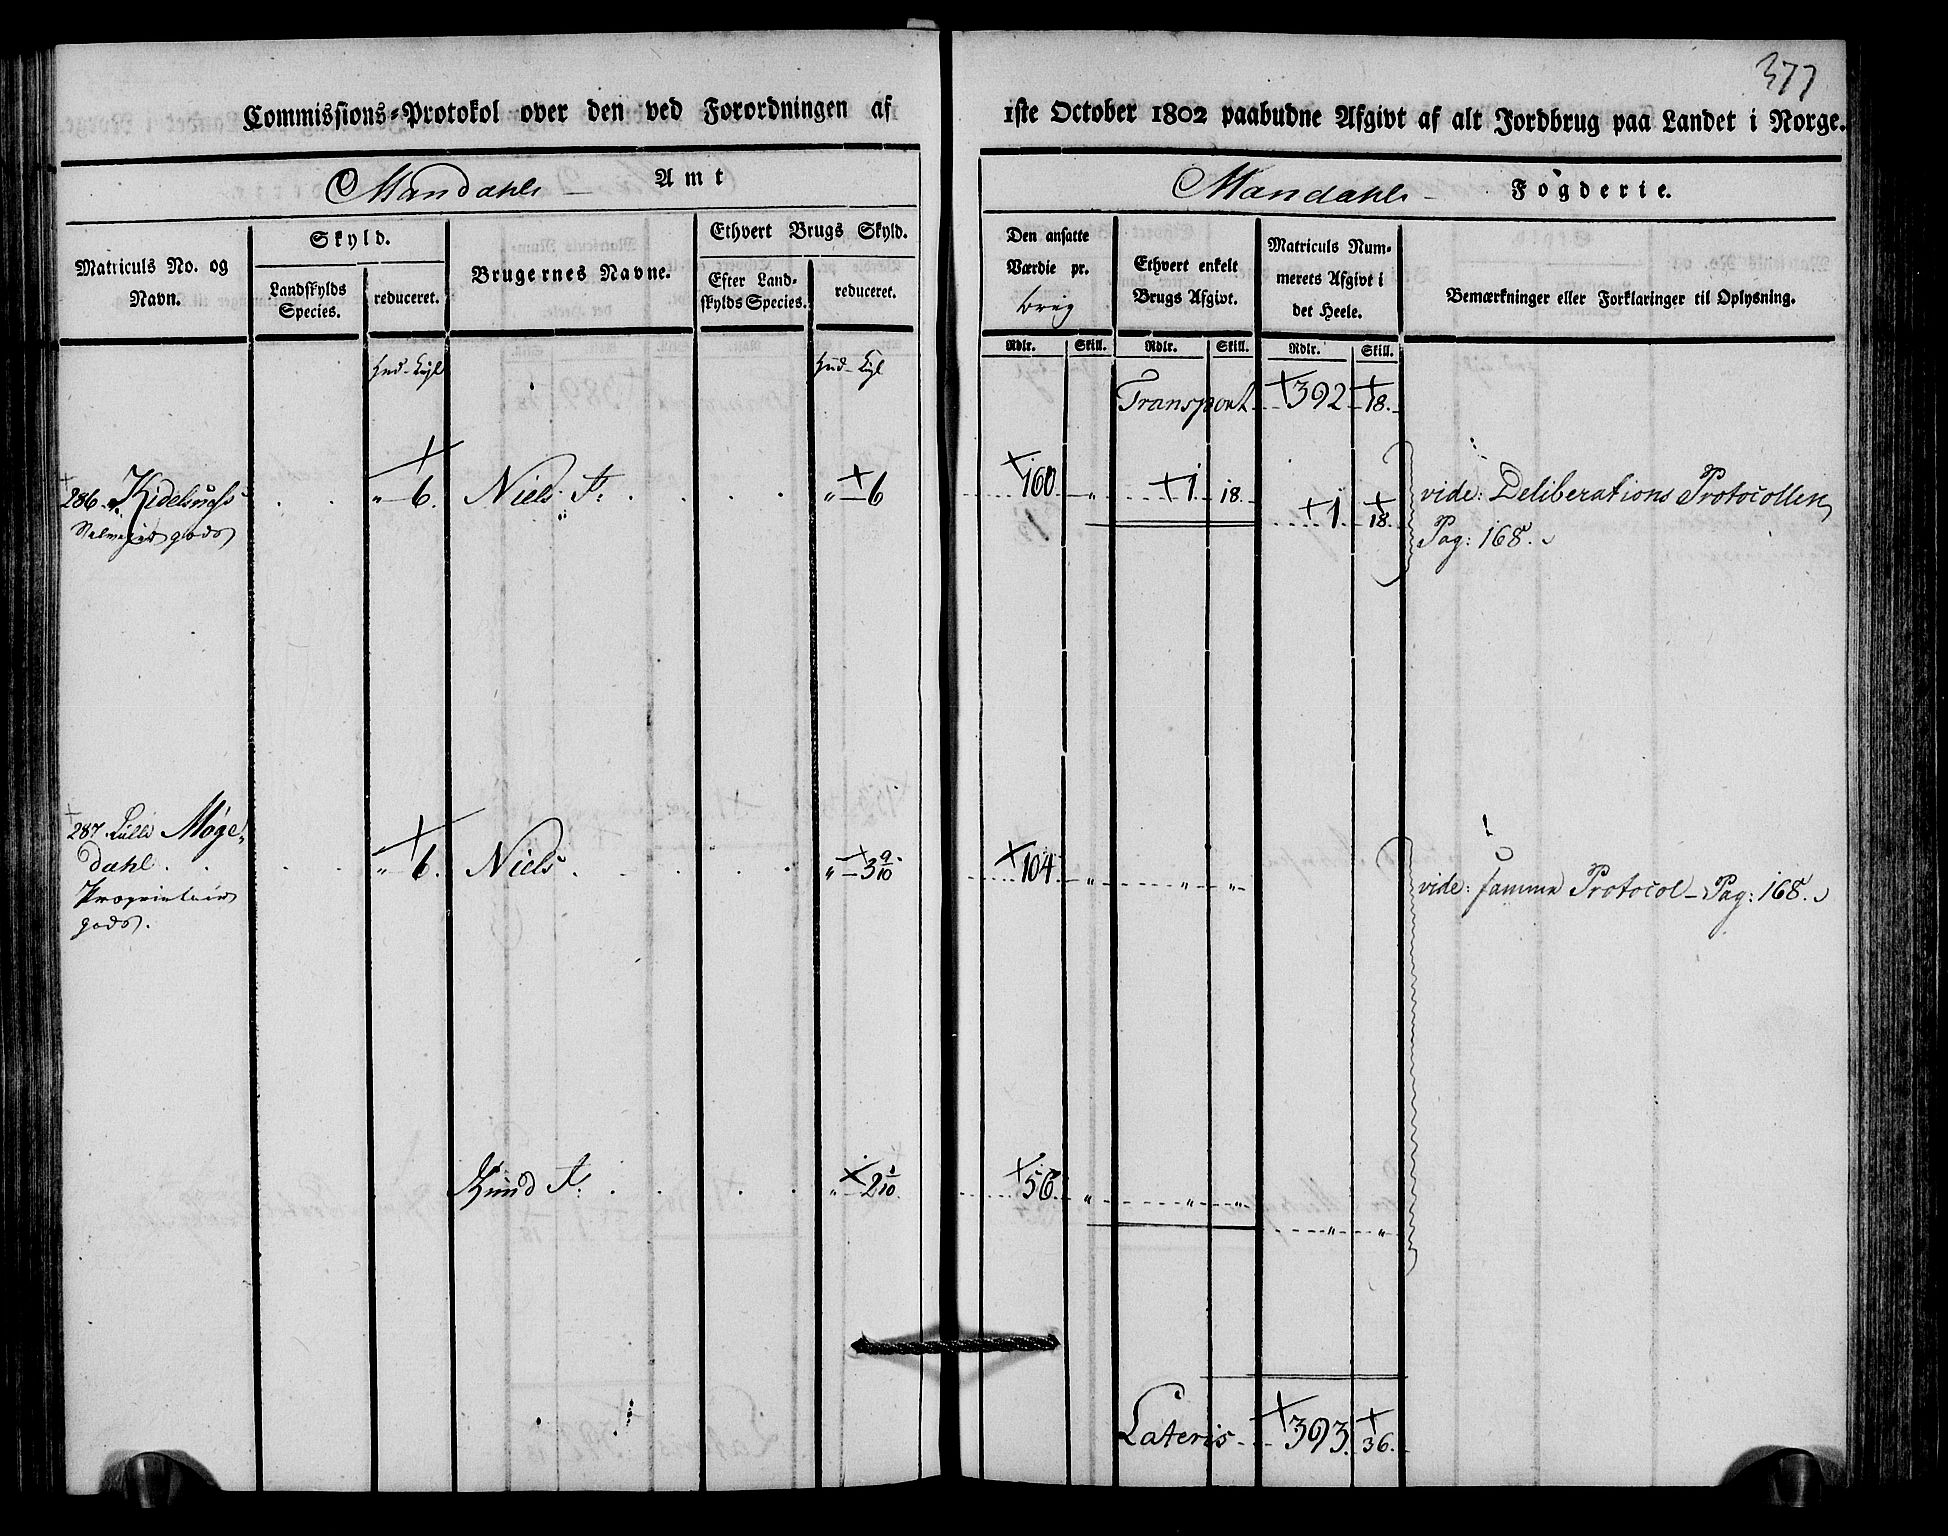 377
Commissions-Protokol over den ved Forordningen af 1ste October 1802 paabudne Afgivt af alt Jordbrug paa Landet i Norge.
Mandahls Amt
Mandahls Fögderie.
Matriculs No. og Navn.
Skyld.
Landskylds Species.
reduceret.
Brugernes Navne.
Ethvert Brugs Skyld.
Efter Landskylds Species.
reduceret.
Den ansatte Værdie pr. brug
Ethvert enkelt Brugs Afgivt.
Matriculs Nummerets Afgivt i det Heele.
Bemærkninger eller Forklaringer til Oplysning.
Rdlr. Skill. Rdlr. Skill. Rdlr. Skill.
Hud - Kgl
Hud - Kgl
Transport 392 18.
286. " 6. Niels " 6 160 " 1 18. 1 18. vide: Deliberations Protocollen
Selveier gods
Pag: 168.
287. Lille Møge-
dahl. " 6. Niels " 3 9/10 104 " " " vide: samme Protocol - Pag: 168.
Proprietair
gods.
Knud " 2 1/10 56 " " "
" "
Lateris 393. 36.